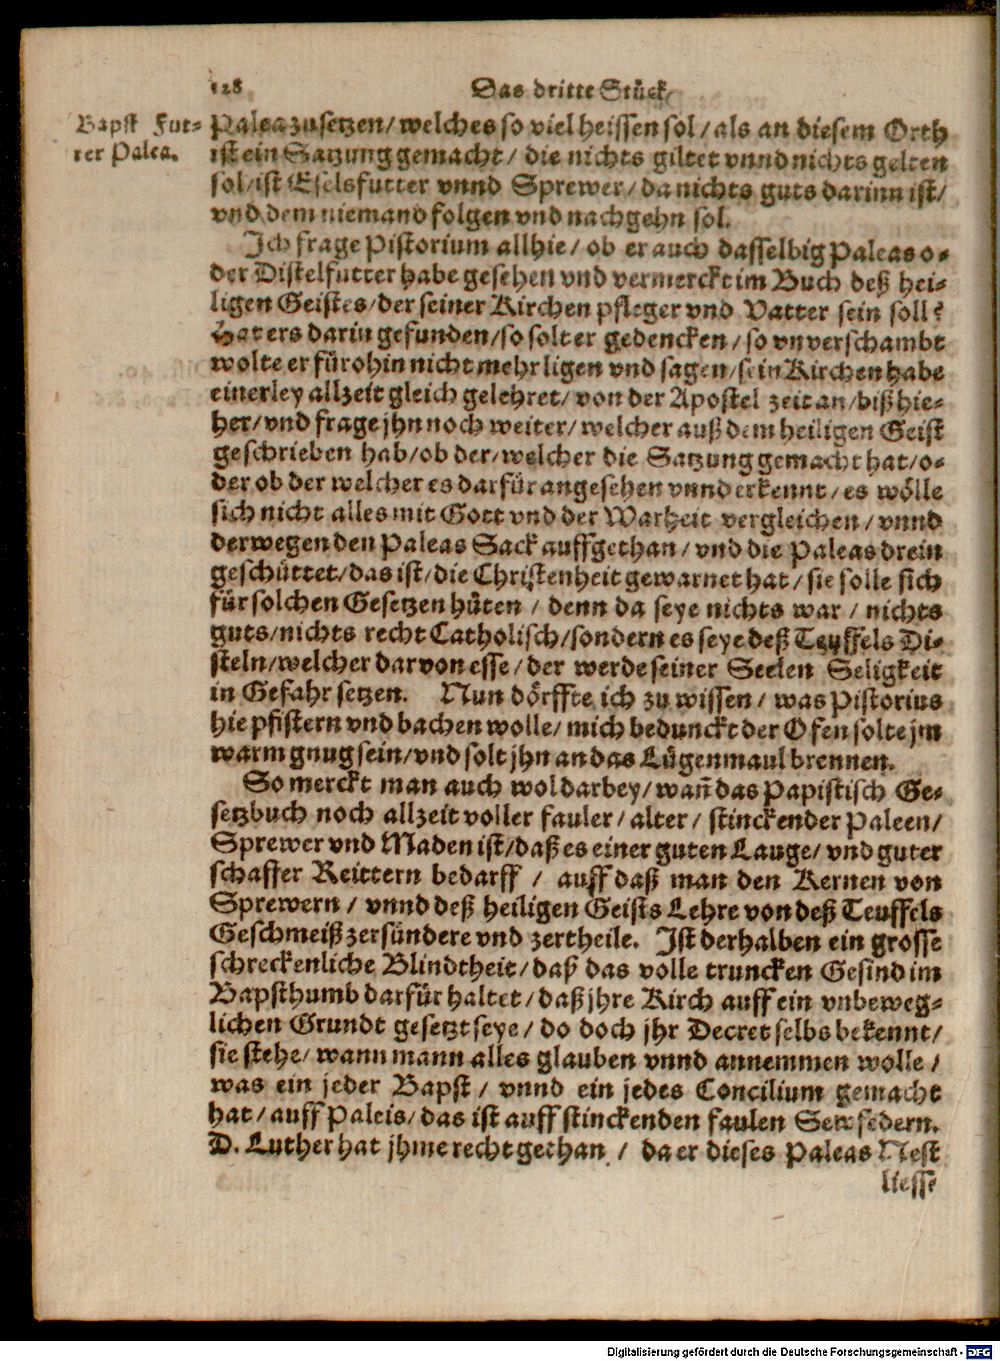 128
Das dritte Stück
Bapst Fut-
ter Palea.
Palea zusetzen/ welches so viel heissen sol/ als an diesem Orth
ist ein Satzung gemacht/ die nichts giltet vnnd nichts gelten
sol/ ist Eselsfutter vnnd Sprewer/ da nichts guts darinn ist/
vnd dem niemand folgen vnd nachgehn sol.
Ich frage Pistorium allhie/ ob er auch dasselbig Paleas o-
der Distelfutter habe gesehen vnd vermerckt im Buch deß hei-
ligen Geistes/ der seiner Kirchen pfleger vnd Vatter sein soll?
Hat ers darin gefunden/ so solt er gedencken/ so vnverschambt
wolte er fürohin nicht mehr ligen vnd sagen/ sein Kirchen habe
einerley allzeit gleich gelehret/ von der Apostel zeit an/ biß hie-
her/ vnd frage jhn noch weiter/ welcher auß dem heiligen Geist
geschrieben hab/ ob der/ welcher die Satzung gemacht hat/ o-
der ob der welcher es darfür angesehen vnnd erkennt/ es wölle
sich nicht alles mit Gott vnd der Warheit vergleichen/ vnnd
derwegen den Paleas Sack auffgethan/ vnd die Paleas drein
geschüttet/ das ist/ die Christenheit gewarnet hat/ sie solle sich
für solchen Gesetzen hüten / denn da seye nichts war / nichts
guts/ nichts recht Catholisch/ sondern es seye deß Teuffels Di-
steln/ welcher darvon esse/ der werde seiner Seelen Seligkeit
in Gefahr setzen. Nun dörffte ich zu wissen/ was Pistorius
hie pfistern vnd bachen wolle/ mich bedunckt der Ofen solte jm
warm gnug sein/ vnd solt jhn an das Lügenmaul brennen.
So merckt man auch wol darbey/ wañ das Papistisch Ge-
setzbuch noch allzeit voller fauler/ alter/ stinckender Paleen/
Sprewer vnd Maden ist/ daß es einer guten Lauge/ vnd guter
schaffer Reittern bedarff / auff daß man den Kernen von
Sprewern / vnnd deß heiligen Geists Lehre von deß Teuffels
Geschmeiß zersündere vnd zertheile. Ist derhalben ein grosse
schreckenliche Blindtheit/ daß das volle truncken Gesind im
Bapsthumb darfür haltet/ daß jhre Kirch auff ein vnbeweg-
lichen Grundt gesetzt seye/ do doch jhr Decret selbs bekennt/
sie stehe/ wann mann alles glauben vnnd annemmen wolle /
was ein jeder Bapst / vnnd ein jedes Concilium gemacht
hat/ auff Paleis/ das ist auff stinckenden faulen Sew federn.
D. Luther hat jhme recht gethan / da er dieses Paleas Nest
liesse
Digitalisierung gefördert durch die Deutsche Forschungsgemeinschaft - DFG